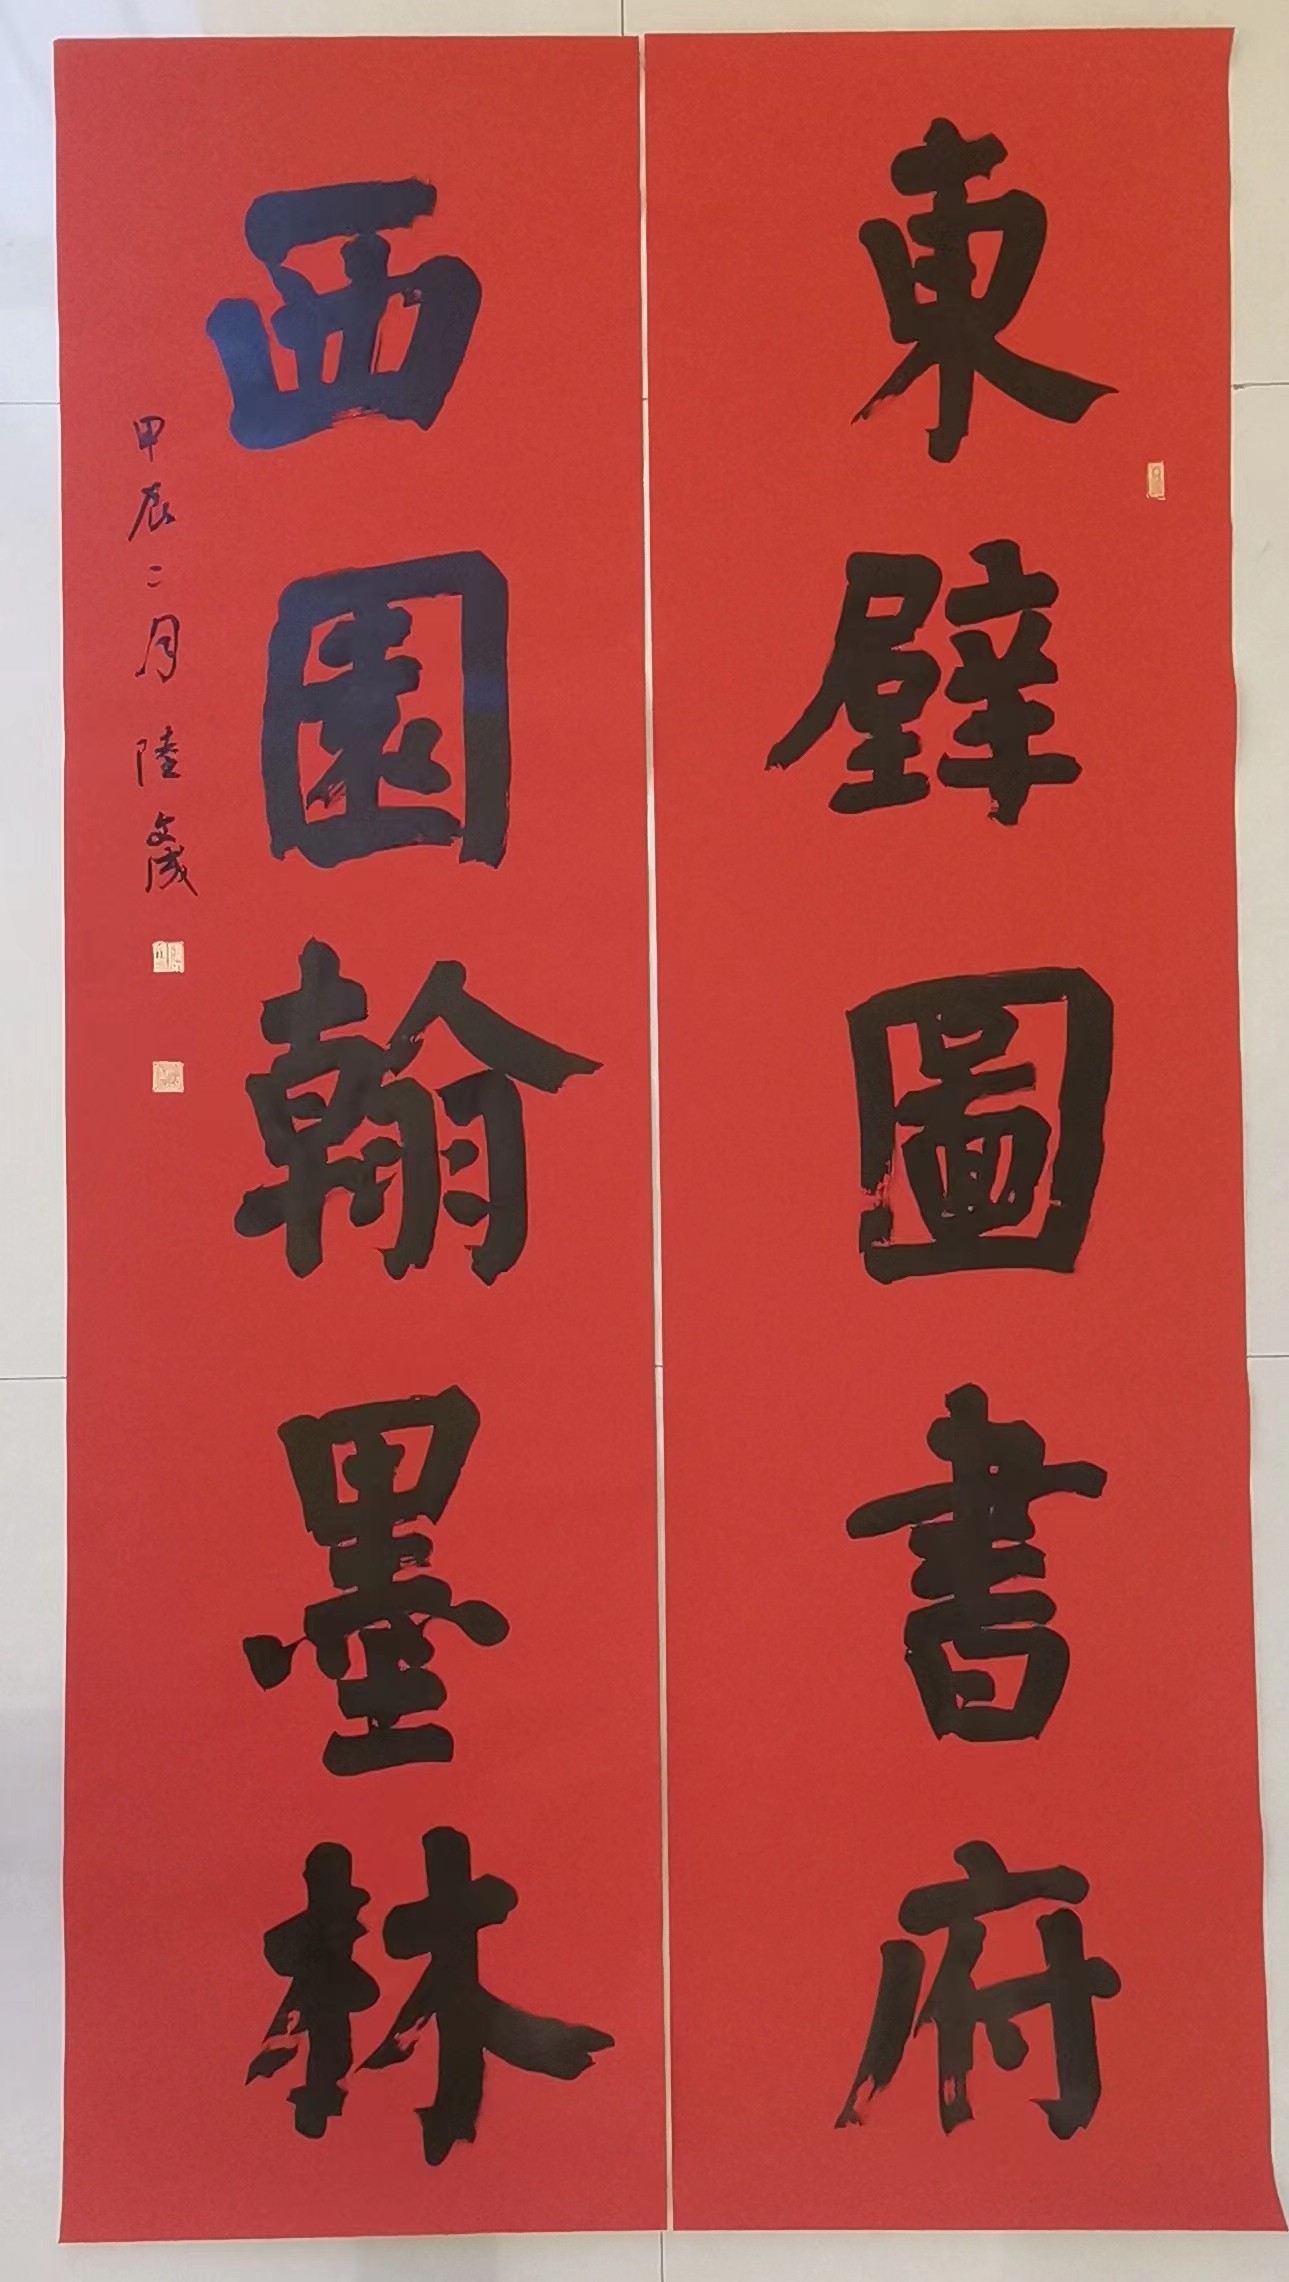 東壁圖書府
西園翰墨林
甲辰二月 陸文成